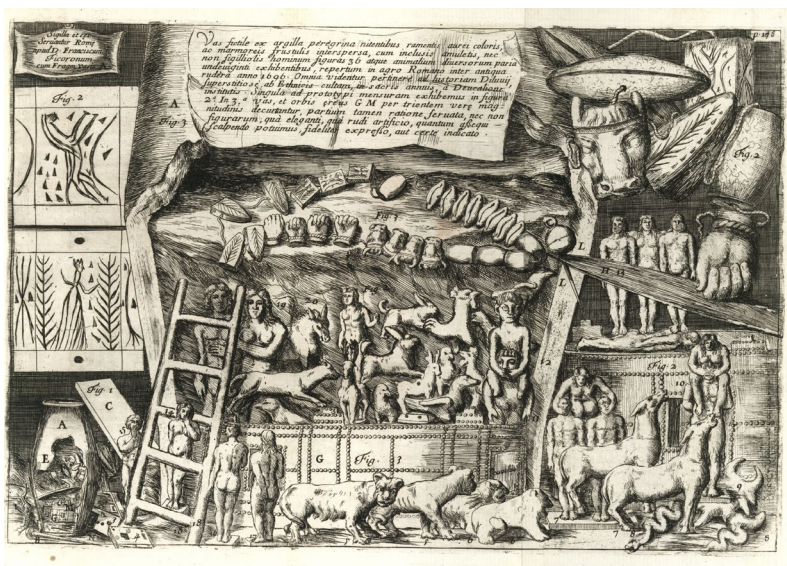 Sigilla et
Servantur Rome
apud D. Franciscum
Ficoronum
Vas fictile ex argilla peregrina nitentibus ramentis aurei coloris,
ac marmoreis frustulis interspersa, cum inclusis amuletis, nec
non sigilliolis hominum figuras 36 atque animalium diversorum paria
undeviginti exhibentibus, repertum in agro Romano inter antiqua
rudera anno 1696. Omnia videntur pertinere ad lustralem Diluvij,
superstitiose ab Ethnicis cultam, in sacris annuis, a Deucalione
institutis. Singula ad prototypi mensuram exhibemus in figura
2.ª In 3.ª Vas, et orbis ereus G M per trientem vere mag-
nitudinis decurtantur, partium tamen ratione servata, nec non
figurarum, quà eleganti, quà rudi artificio, quantum assequi
scalpendo potuimus, fideliter expresso, aut certe indicato.
Fig. 2
A
Fig. 3
Fig. 2
Fig. 3
L
L
13
Fig. 2
10
Fig. 1
C
A
E
G
Fig. 3
18
9
7
8